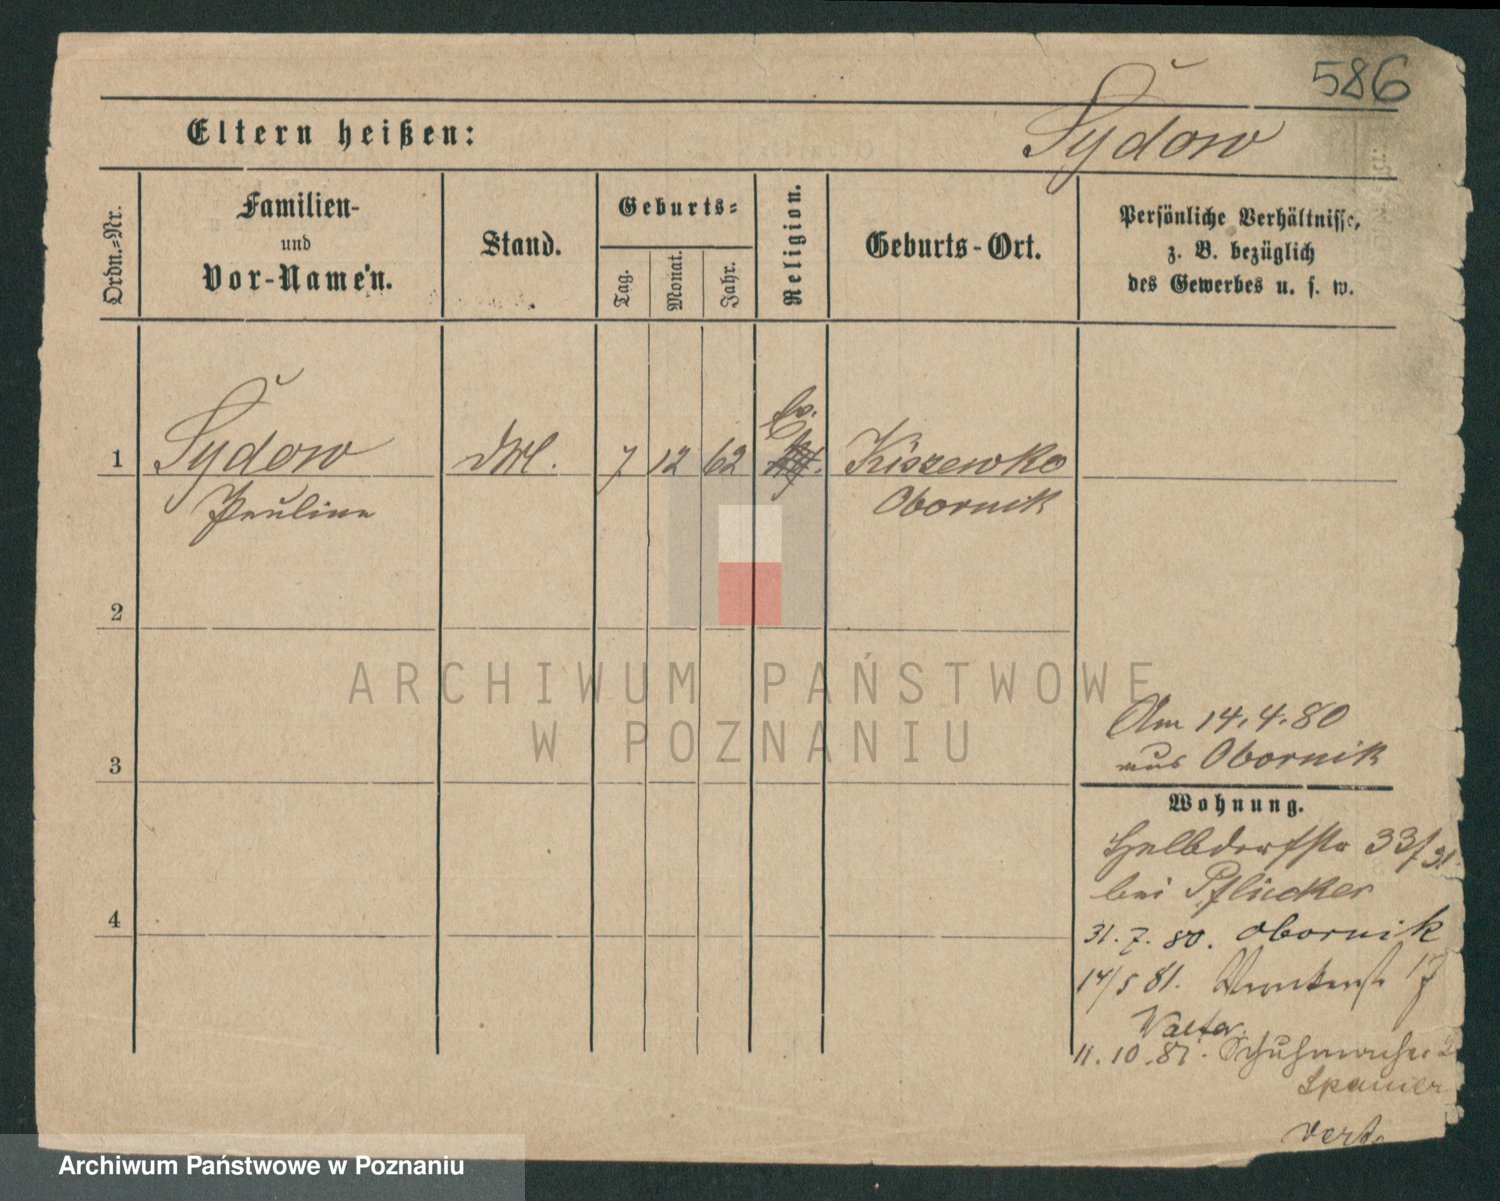 586
Eltern heißen:
Sydow
Ordn.-Nr.
Familien-
und
Vor-Namen.
Stand.
Geburts-
Tag.
Monat.
Jahr.
Religion.
Geburts-Ort.
Persönliche Verhältnisse,
z. B. bezüglich
des Gewerbes u. s. w.
Ev.
1 Sydow 7 12 62 Kiszewko
Pauline Obornik
2
3
4
ARCHIWUM PAŃSTWOWE
W POZNANIU
Am 14.4.80
aus Obornik
Wohnung.
Halbdorfstr 33/31.
bei Pflücker
31. 7. 80. Obornik
14/5 81. 17
11.10.81. Schuhmacher 2
Spanier
Archiwum Państwowe w Poznaniu